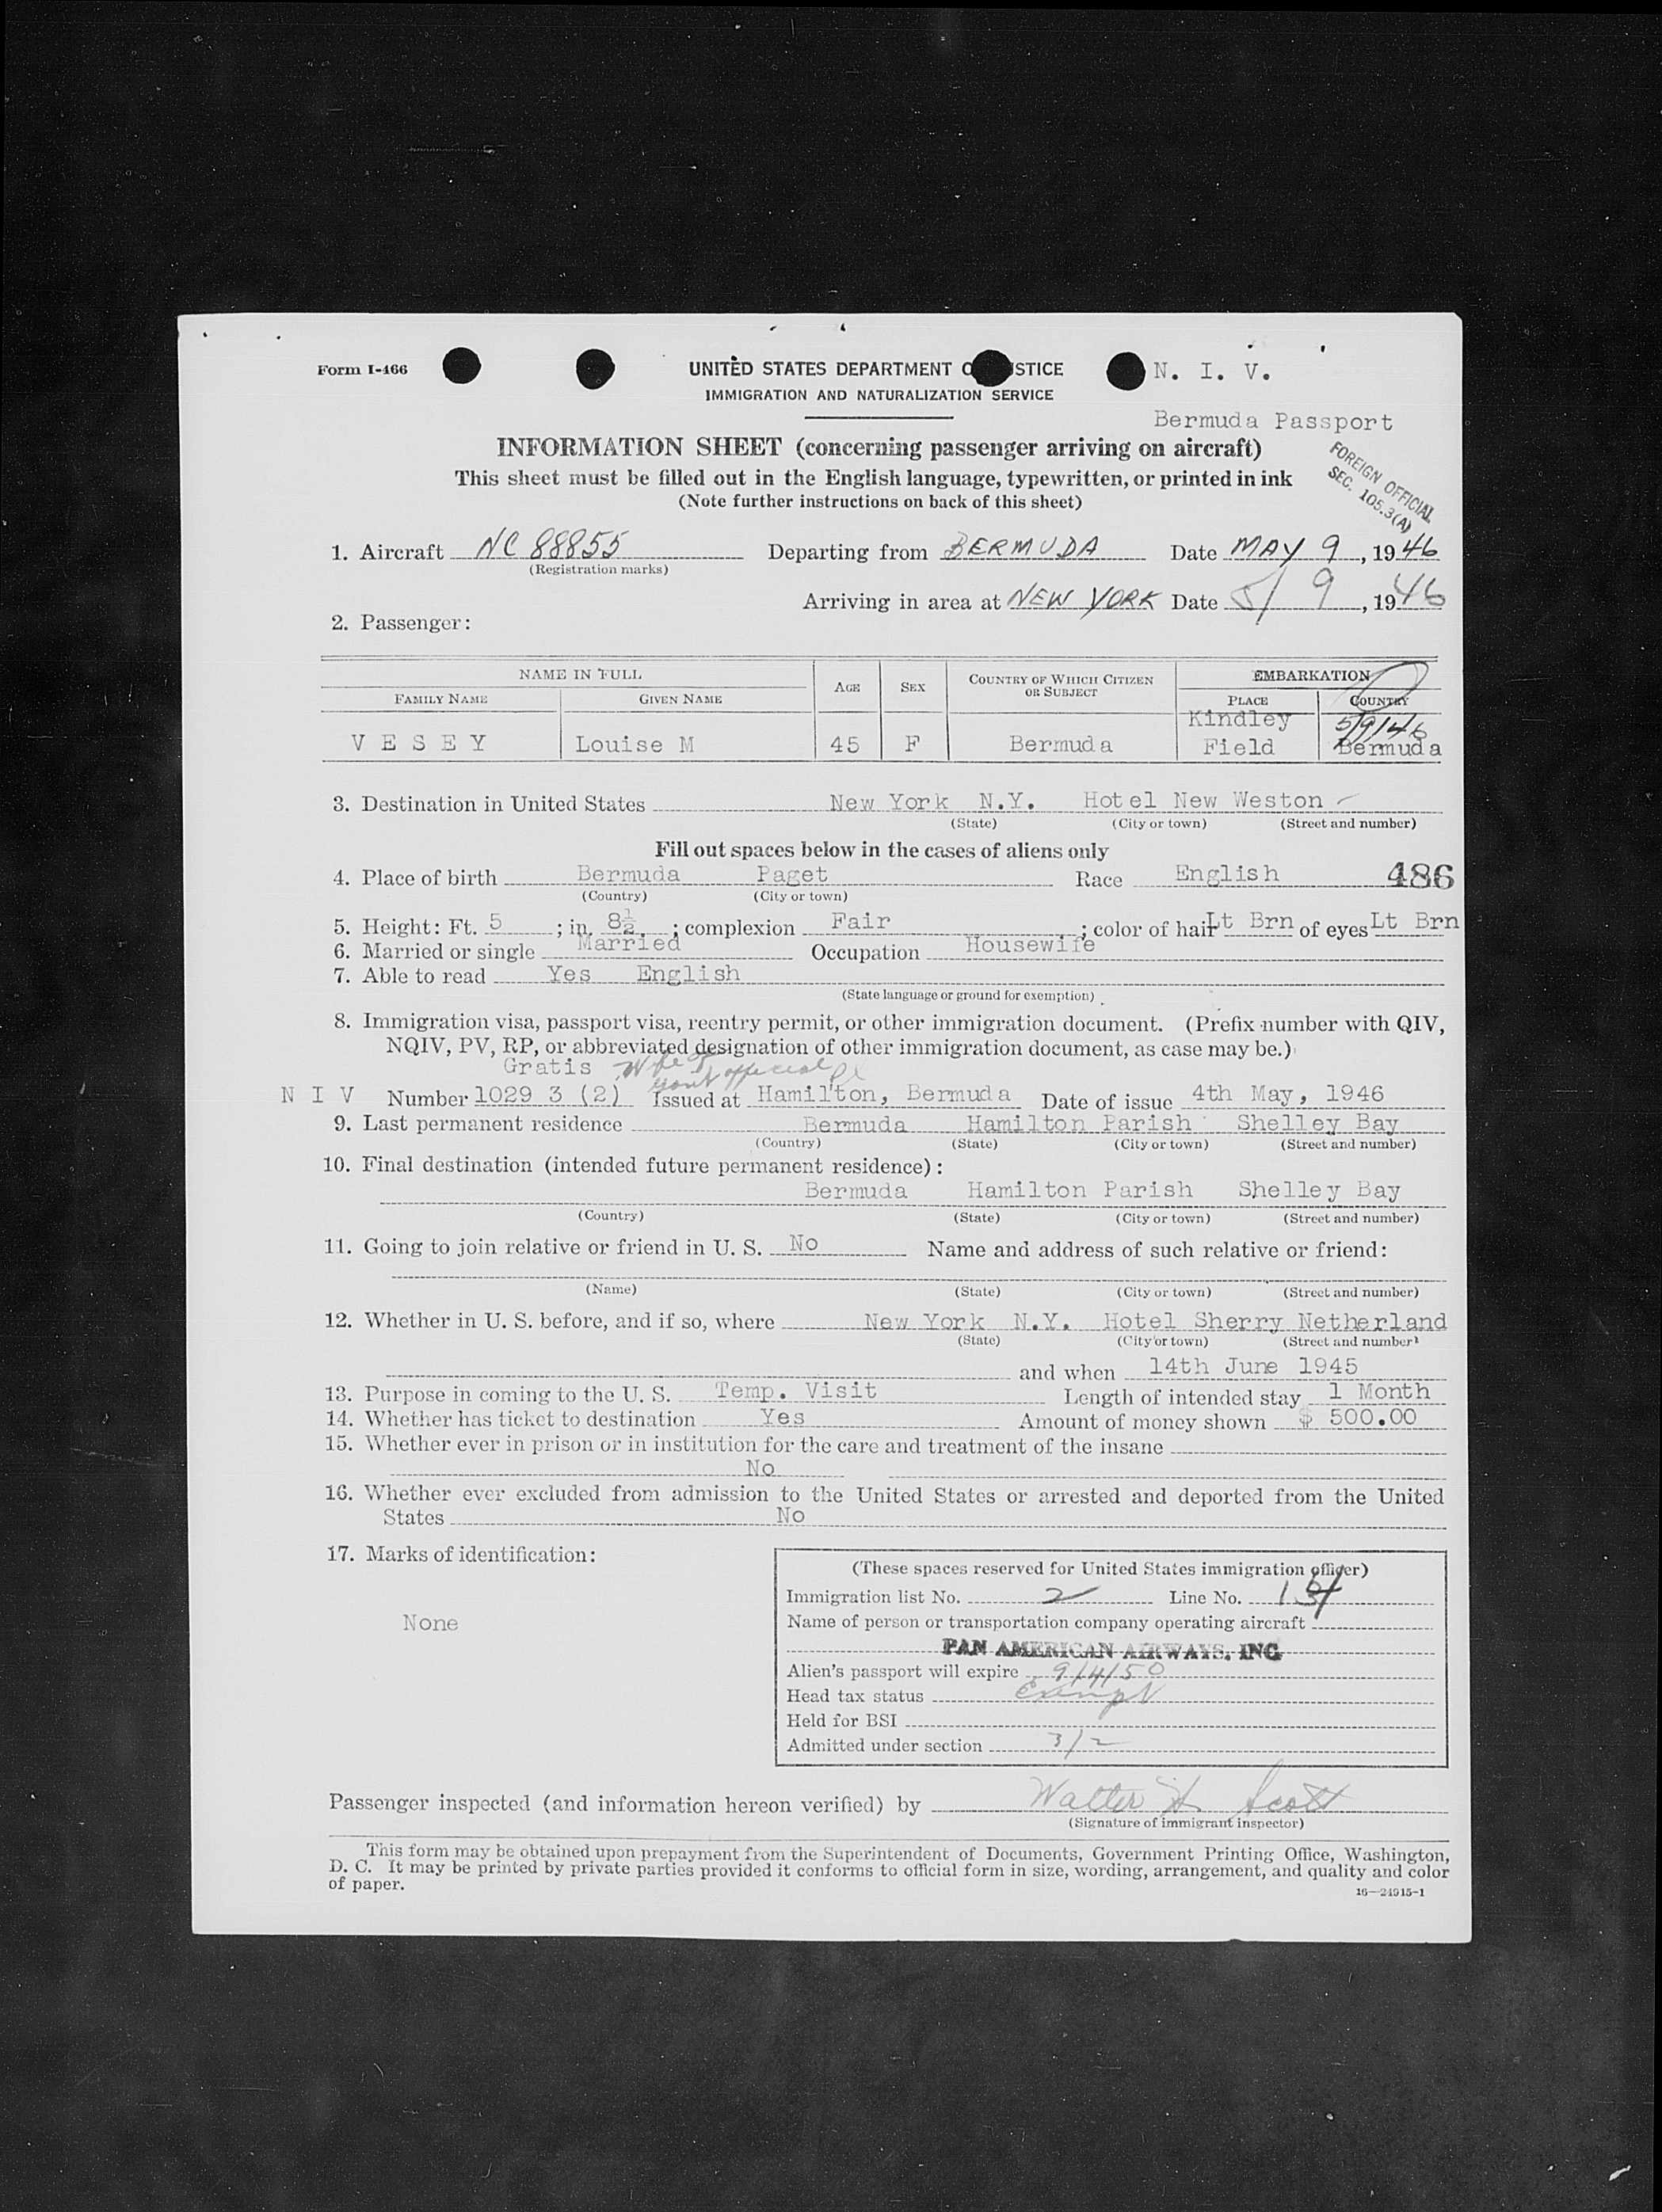 Form I-466
UNITED STATES DEPARTMENT O STICE
N. I. V.
IMMIGRATION AND NATURALIZATION SERVICE
Bermuda Passport
INFORMATION SHEET (concerning passenger arriving on aircraft)
FOREIGN OFFICIAL
SEC. 105.3(A)
This sheet must be filled out in the English language, typewritten, or printed in ink
(Note further instructions on back of this sheet)
1. Aircraft NC 88855 Departing from BERMUDA Date MAY 9, 1946
(Registration marks)
Arriving in area at NEW YORK Date 5/9, 1946
2. Passenger:
NAME IN FULL AGE SEX COUNTRY OF WHICH CITIZEN OR SUBJECT EMBARKATION
FAMILY NAME GIVEN NAME PLACE COUNTRY
Kindley 5/9/46
VESEY Louise M 45 F Bermuda Field Bermuda
3. Destination in United States New York N.Y. Hotel New Weston
(State) (City or town) (Street and number)
Fill out spaces below in the cases of aliens only
4. Place of birth Bermuda Paget Race English 486
(Country) (City or town)
5. Height: Ft. 5; in. 8½; complexion Fair; color of hair Lt Brn of eyes Lt Brn
6. Married or single Married Occupation Housewife
7. Able to read Yes English
(State language or ground for exemption)
8. Immigration visa, passport visa, reentry permit, or other immigration document. (Prefix number with QIV,
NQIV, PV, RP, or abbreviated designation of other immigration document, as case may be.)
Gratis Wife of
Govt official
N I V Number 1029 3 (2) Issued at Hamilton, Bermuda Date of issue 4th May, 1946
9. Last permanent residence Bermuda Hamilton Parish Shelley Bay
(Country) (State) (City or town) (Street and number)
10. Final destination (intended future permanent residence):
Bermuda Hamilton Parish Shelley Bay
(Country) (State) (City or town) (Street and number)
11. Going to join relative or friend in U. S. No Name and address of such relative or friend:
(Name) (State) (City or town) (Street and number)
12. Whether in U. S. before, and if so, where New York N.Y. Hotel Sherry Netherland
(State) (City or town) (Street and number)
and when 14th June 1945
13. Purpose in coming to the U. S. Temp. Visit Length of intended stay 1 Month
14. Whether has ticket to destination Yes Amount of money shown $ 500.00
15. Whether ever in prison or in institution for the care and treatment of the insane
No
16. Whether ever excluded from admission to the United States or arrested and deported from the United
States No
17. Marks of identification:
None
(These spaces reserved for United States immigration officer)
Immigration list No. 2 Line No.
Name of person or transportation company operating aircraft
PAN AMERICAN AIRWAYS, INC.
Alien's passport will expire 9/4/50
Head tax status Exempt
Held for BSI
Admitted under section 3/2
Passenger inspected (and information hereon verified) by Walter H Scott
(Signature of immigrant inspector)
This form may be obtained upon prepayment from the Superintendent of Documents, Government Printing Office, Washington,
D. C. It may be printed by private parties provided it conforms to official form in size, wording, arrangement, and quality and color
of paper.
16—24915-1